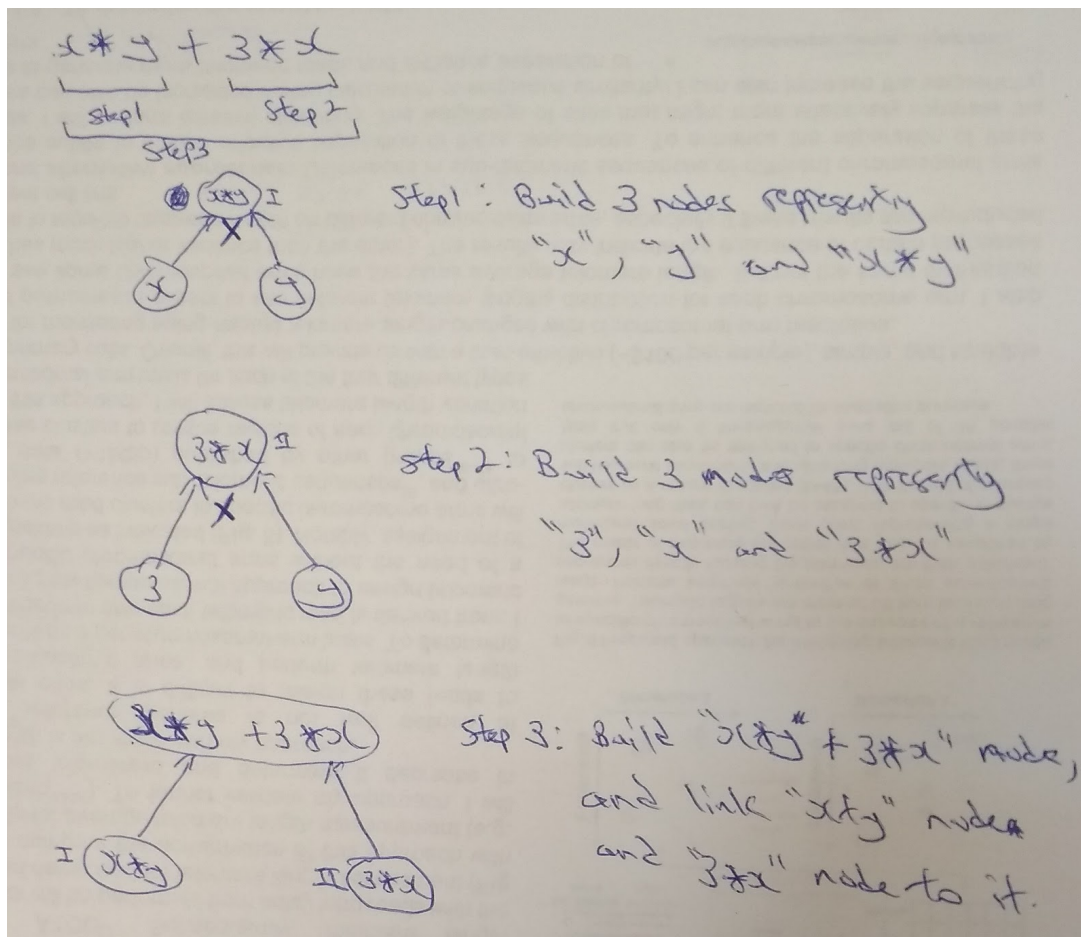 x*y + 3*x
Step1 Step2
Step3
x*y I
x
x y
Step1: Build 3 nodes representing
"x", "y" and "x*y"
3*x II
x
3 y
Step 2: Build 3 nodes representing
"3", "x" and "3*x"
x*y + 3*x
I x*y II 3*x
Step 3: Build "x*y" + 3*x" node,
and link "x*y" node
and "3*x" node to it.